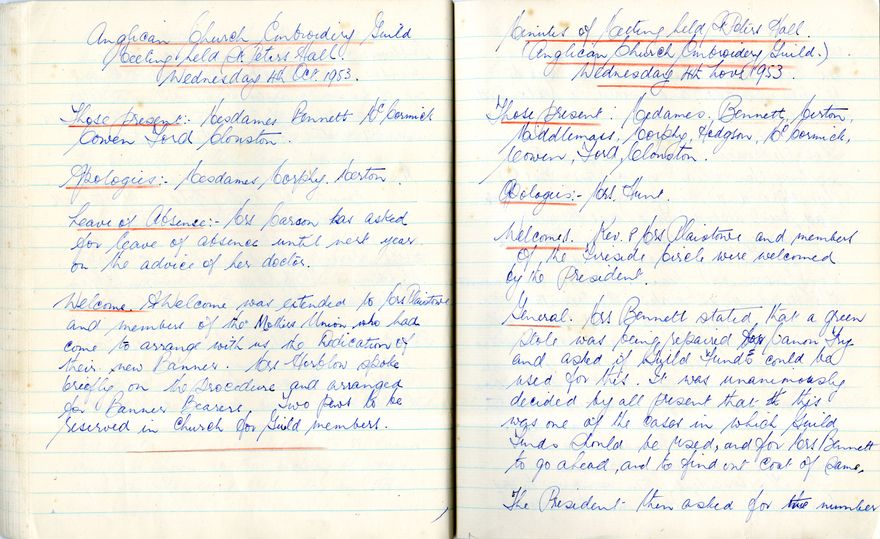 Anglican Church Embroidery Guild
Meeting held St. Peters Hall.
Wednesday 4th Oct. 1953.
Those present:- Mesdames Bennett McCormick
Cowen Ford Clouston.
Apologies:- Mesdames, Morphy. Merton.
Leave of Absence:- Mrs Carson has asked
for leave of absence until next year
on the advice of her doctor.
Welcome. A Welcome was extended to Mrs Plaistowe
and members of the Mothers Union who had
come to arrange with us the Dedication of
their new Banner. Mrs spoke
briefly on the procedure and arranged
for Banner Bearers. Two pews to be
reserved in Church for Guild members.
Minutes of Meeting held St Peters Hall.
(Anglican Church Embroidery Guild.)
Wednesday 4th Nov. 1953.
Those present: Mesdames. Bennett, Merton,
Middlemass, Morphy, Hodgson, McCormick,
Cowen, Ford, Clouston.
Apologies:- Mrs. Hunt.
Welcomes. Rev. & Mrs Plaistowe and members
of the Fireside Circle were welcomed
by the President.
General. Mrs Bennett stated, that a green
stole was being repaired for Canon Fry
and asked if Guild Funds could be
used for this. It was unanimously
decided by all present that this
was one of the cases in which Guild
Funds should be used, and for Mrs Bennett
to go ahead, and to find out cost of same.
The President then asked for the number